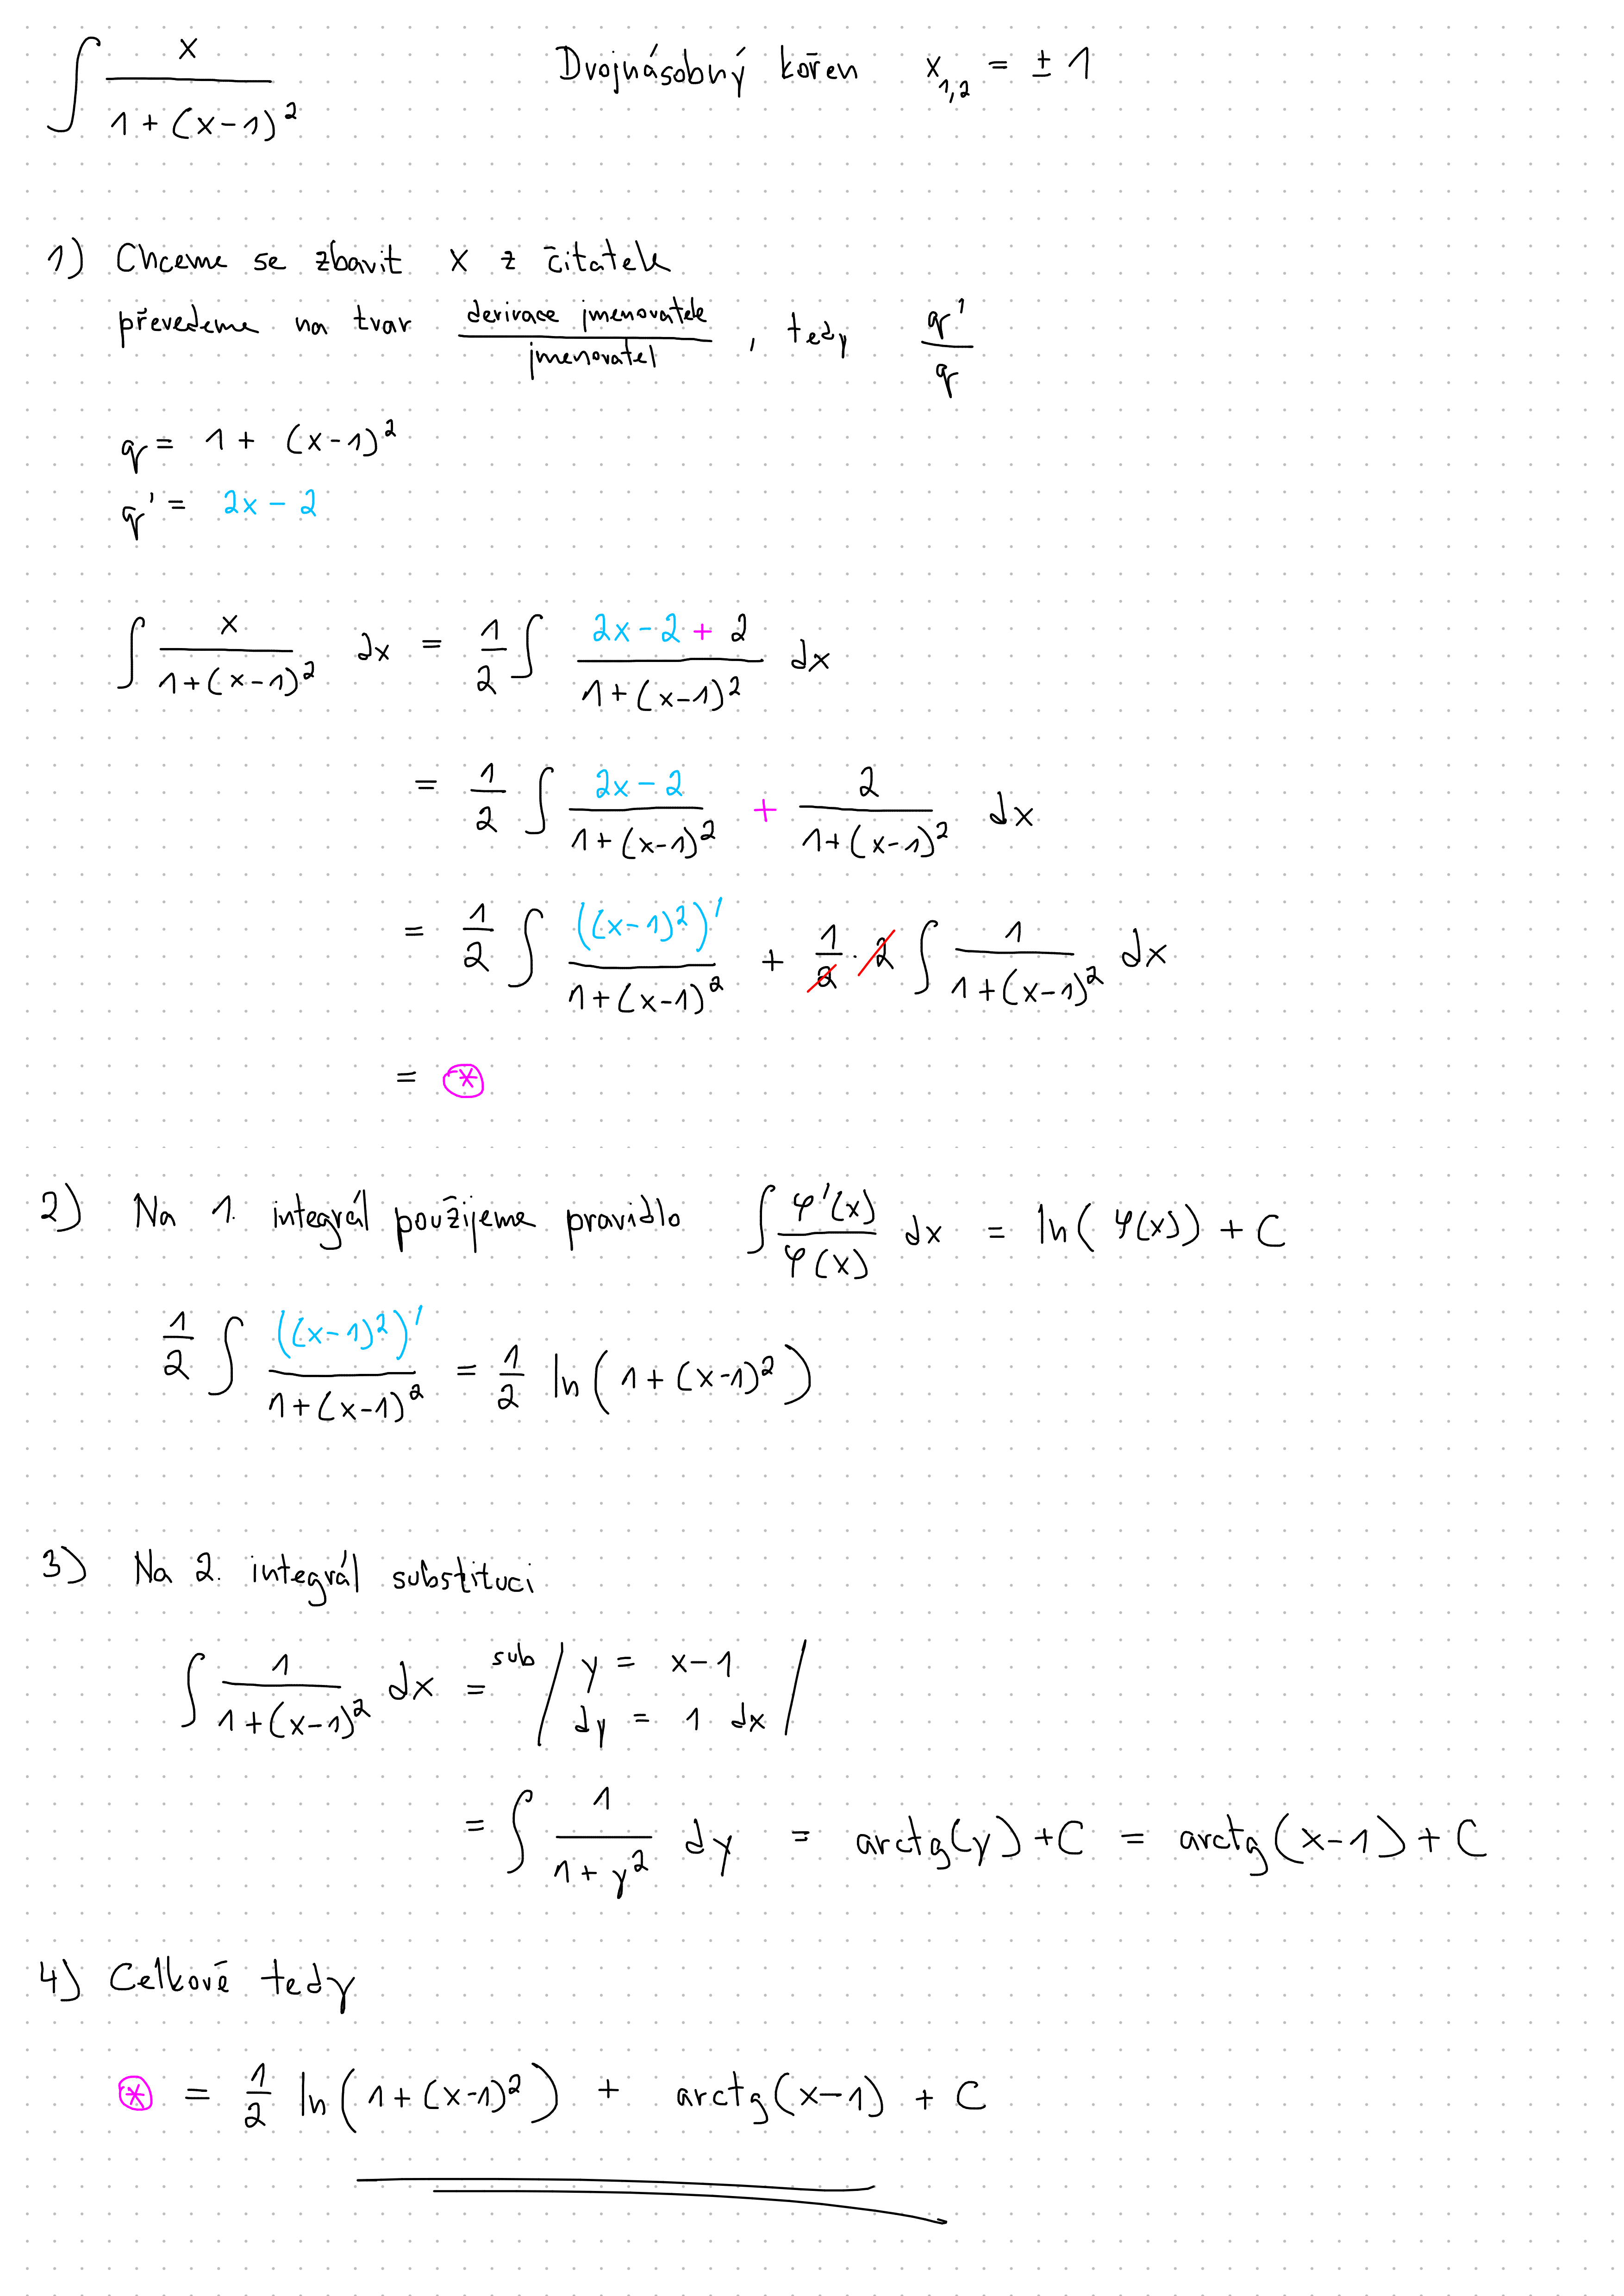 ∫ x / (1 + (x-1)²) Dvojnásobný kořen x₁,₂ = ± 1
1) Chceme se zbavit x z čitatele
převedeme na tvar derivace jmenovatele / jmenovatel , tedy q' / q
q = 1 + (x-1)²
q' = 2x - 2
∫ x / (1+(x-1)²) dx = 1/2 ∫ (2x - 2 + 2) / (1+(x-1)²) dx
= 1/2 ∫ (2x - 2) / (1+(x-1)²) + 2 / (1+(x-1)²) dx
= 1/2 ∫ ((x-1)²)' / (1+(x-1)²) + 1/2 · 2 ∫ 1 / (1+(x-1)²) dx
= ⊛
2) Na 1. integrál použijeme pravidlo ∫ φ'(x) / φ(x) dx = ln( φ(x)) + C
1/2 ∫ ((x-1)²)' / (1+(x-1)²) = 1/2 ln( 1+(x-1)² )
3) Na 2. integrál substituci
∫ 1 / (1+(x-1)²) dx = sub / y = x-1
dy = 1 dx /
= ∫ 1 / (1+y²) dy = arctg(y) + C = arctg(x-1) + C
4) Celkově tedy
⊛ = 1/2 ln( 1+(x-1)² ) + arctg(x-1) + C